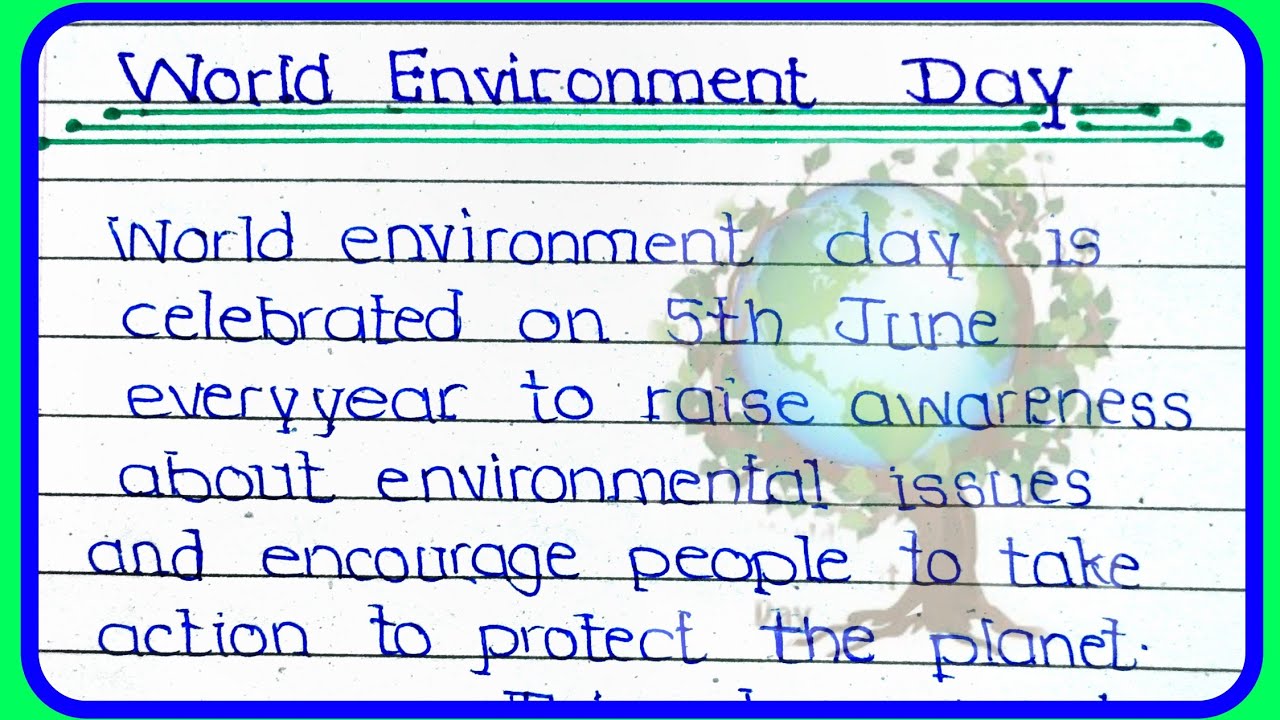 World Environment Day
World environment day is
celebrated on 5th June
everyyear to raise awareness
about environmental issues
and encourage people to take
action to protect the planet.
Day